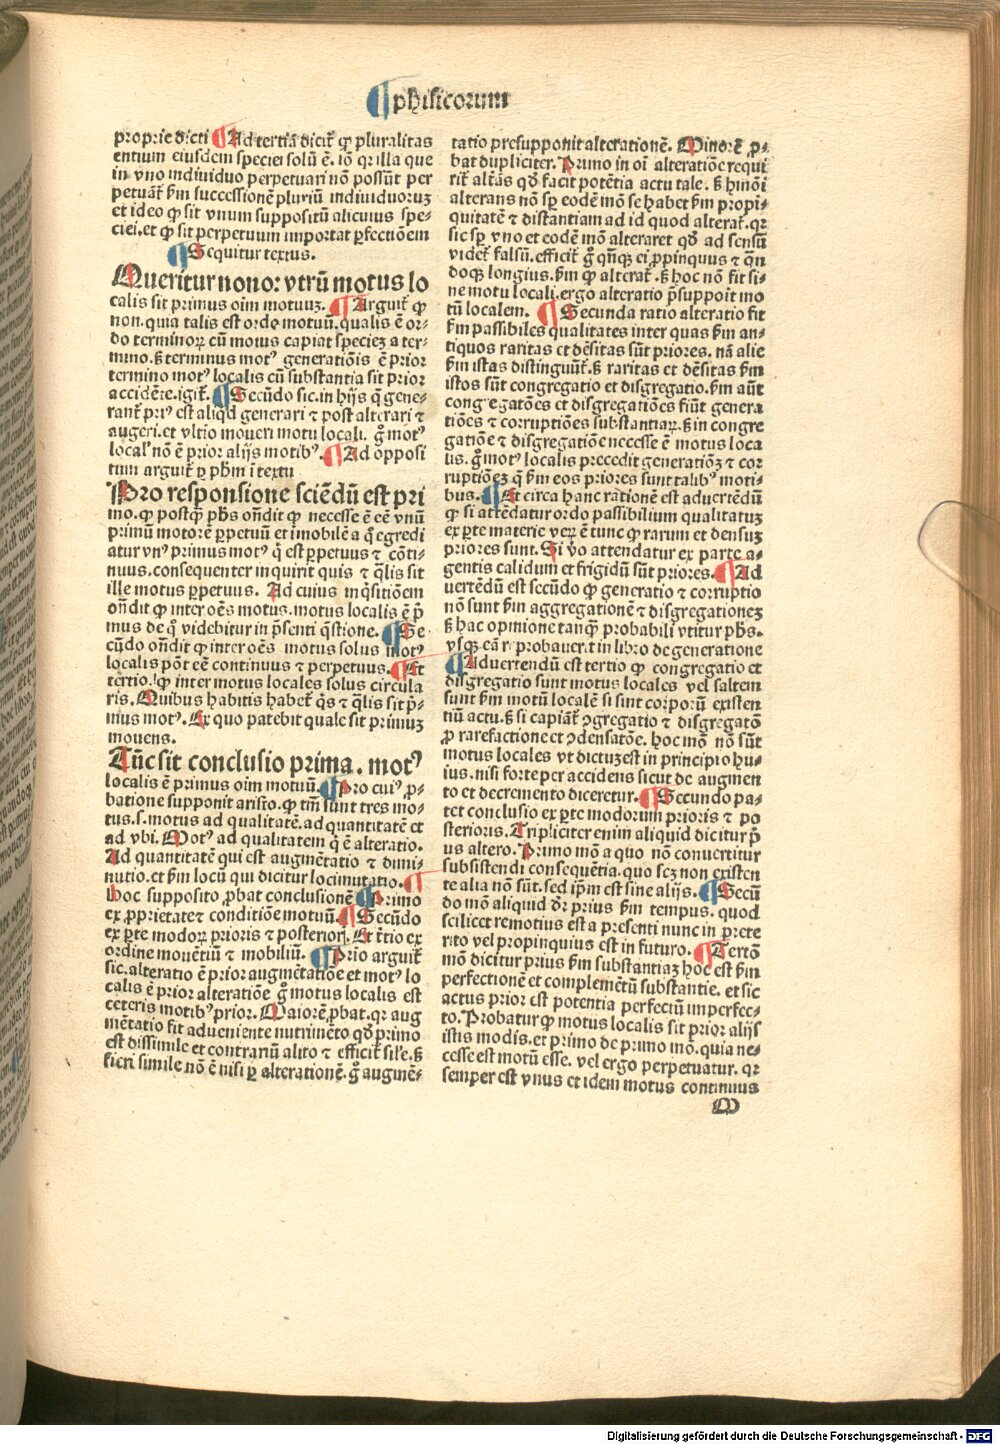 ¶ phisicorum
proprie dicti ¶ Ad tertiā dicit᷑ ꝙ pluralitas
entium eiusdem speciei solū ē. iō qꝛ illa que
in vno indiuiduo perpetuari nō possūt per
petuāt᷑ ẜm successionē pluriū indiuiduoruꝫ
et ideo ꝙ sit vnum suppositū alicuius spe⸗
ciei.et ꝙ sit perpetuum importat ꝑfectiōem
¶ Sequitur textus.
Queritur nono: vtrū motus lo
calis sit primus oim motuuꝫ. ¶ Arguit᷑ ꝙ
non. quia talis est ordo motuū. qualis ē or⸗
do terminoꝝ cū motus capiat specieꝫ a ter⸗
mino.ꝫ terminus motꝰ generatiōis ē prior
termino motꝰ localis cū substantia sit prior
accidēte.igit᷑. ¶ Secūdo sic.in hijs q̄ gene⸗
rant᷑ priꝰ est aliqd generari ⁊ post alterari ⁊
augeri.et vltīo moueri motu locali. g̊ motꝰ
local' nō ē prior alijs motibꝰ. ¶ Ad opposi
tum arguit᷑ ꝑ pħm ī textu
Pro responsione sciēdū est pri
mo. ꝙ postq̄ƺ pħs oñdit ꝙ necesse ē eē vnū
primū motorē ꝑpetuū et imobilē a q̊ egredi
atur vnꝰ primus motꝰ q̇ est ꝑpetuus ⁊ cōti⸗
nuus.consequenter inquirit quis ⁊ q̄lis sit
ille motus ꝑpetuus. Ad cuius inq̇sitiōem
oñdit ꝙ inter oēs motus.motus localis ē p̄
mus de q̊ videbitur in p̄senti q̄stione. ¶ Se
cūdo oñdit ꝙ inter oēs motus solus motꝰ
localis pōt eē continuus ⁊ perpetuus. ¶ Et
tertio. ꝙ inter motus locales solus circula
ris. Quibus habitis habet᷑ q̇s ⁊ q̄lis sit p̄⸗
mus motꝰ. Ex quo patebit quale sit primuꝫ
mouens.
Tūc sit conclusio prima. motꝰ
localis ē primus oim motuū. ¶ Pro cuiꝰ ꝓ⸗
batione supponit aristo. ꝙ tm̄ sunt tres mo⸗
tus.s.motus ad qualitatē.ad quantitatē et
ad vbi. Motꝰ ad qualitatem q̇ ē alteratio.
Ad quantitatē qui est augmētatio ⁊ dimi⸗
nutio.et ẜm locū qui dicitur locimutatio. ¶
hoc supposito ꝓbat conclusionē ¶ Primo
ex ꝓprietate ⁊ conditiōe motuū. ¶ Secūdo
ex ꝑte modoꝝ prioris ⁊ posteriorj. Et t̄tio ex
ordine mouētiū ⁊ mobiliū. ¶ Prīo arguit᷑
sic.alteratio ē prior augmētatiōe et motꝰ lo
calis ē prior alteratiōe g̊ motus localis est
ceteris motibꝰ prior. Maiorē ꝓbat. qꝛ aug
mētatio fit adueniente nutrimēto qd̄ primo
est dissimile et contrariū alito ⁊ efficit᷑ sil'e.ꝫ
fieri simile nō ē nisi ꝑ alterationē. g̊ augmē⸗
tatio presupponit alterationē. Minorē ꝓ⸗
bat dupliciter. Primo in oī alteratiōe requi
rit᷑ altās qd̄ facit potētia actu tale. ꝫ hmōi
alterans nō sꝑ eodē mō se habet ẜm propi⸗
quitatē ⁊ distantiam ad id quod alterat᷑. qꝛ
sic sꝑ vno et eodē mō alteraret qd̄ ad sensū
videt᷑ falsū. efficit᷑ g̊ qn̄qꝫ ei ꝓpinquus ⁊ qn̄
doqꝫ longius. ẜm ꝙ alterat᷑ .ꝫ hoc nō fit si⸗
ne motu locali.ergo alteratio p̄suppoit mo
tū localem. ¶ Secunda ratio alteratio fit
ẜm passibiles qualitates inter quas ẜm an⸗
tiquos raritas et dēsitas sūt priores. nā alie
ẜm istas distinguūt᷑.ꝫ raritas et dēsitas ẜm
istos sūt congregatio et disgregatio.ẜm aūt
congregatōes et disgregatiōes fiūt genera
tiōes ⁊ corruptiōes substantiaꝝ.ꝫ in congre
gatiōe ⁊ disgregatiōe necesse ē motus loca
lis. g̊ motꝰ localis precedit generatiōꝫ ⁊ cor
ruptiōeꝫ q̄ ẜm eos priores sunt talibꝰ moti⸗
bus. ¶ Et circa hanc rationē est aduertēdū
ꝙ si attēdatur ordo passibilium qualitatuꝫ
ex ꝑte materie veꝝ ē tunc ꝙ rarum et densuꝫ
priores sunt. Si v̊o attendatur ex parte a⸗
gentis calidum et frigidū sūt priores. ¶ Ad
uertēdū est secūdo ꝙ generatio ⁊ corruptio
nō sunt ẜm aggregationē ⁊ disgregationeꝫ
ꝫ hac opinione tanq̄ƺ probabili vtitur pħs.
vsqꝫ eā reprobauerit in libro de generatione
¶ Aduertendū est tertio ꝙ congregatio et
disgregatio sunt motus locales vel saltem
sunt ẜm motū localē si sint corporū existen
tiū actu.ꝫ si capiāt᷑ ꝯgregatio ⁊ disgregatō
ꝓ rarefactione et ꝯdensatōe. hoc mō nō sūt
motus locales vt dictuꝫ est in principio hu⸗
ius.nisi forte per accidens sicut de augmen
to et decremento diceretur. ¶ Secundo pa⸗
tet conclusio ex ꝑte modorum prioris ⁊ po
sterioris. Tripliciter enim aliquid dicitur p̄
us altero. Primo mō a quo nō conuertitur
subsistendi consequētia. quo scꝫ non existen
te alia nō sūt. sed ip̄m est sine alijs. ¶ Secū
do mō aliquid dr̄ prius ẜm tempus. quod
scilicet remotius est a presenti nunc in prete
rito vel propinquius est in futuro. ¶ Tertō
mō dicitur prius ẜm substantiaꝫ hoc est ẜm
perfectionē et complemētū substantie. et sic
actus prior est potentia perfectū imperfec⸗
to. Probatur ꝙ motus localis sit prior alijs
istis modis.et primo de primo mō.quia ne⸗
cesse est motū esse. vel ergo perpetuatur. qꝛ
semper est vnus et idem motus continuus
M
Digitalisierung gefördert durch die Deutsche Forschungsgemeinschaft - DFG